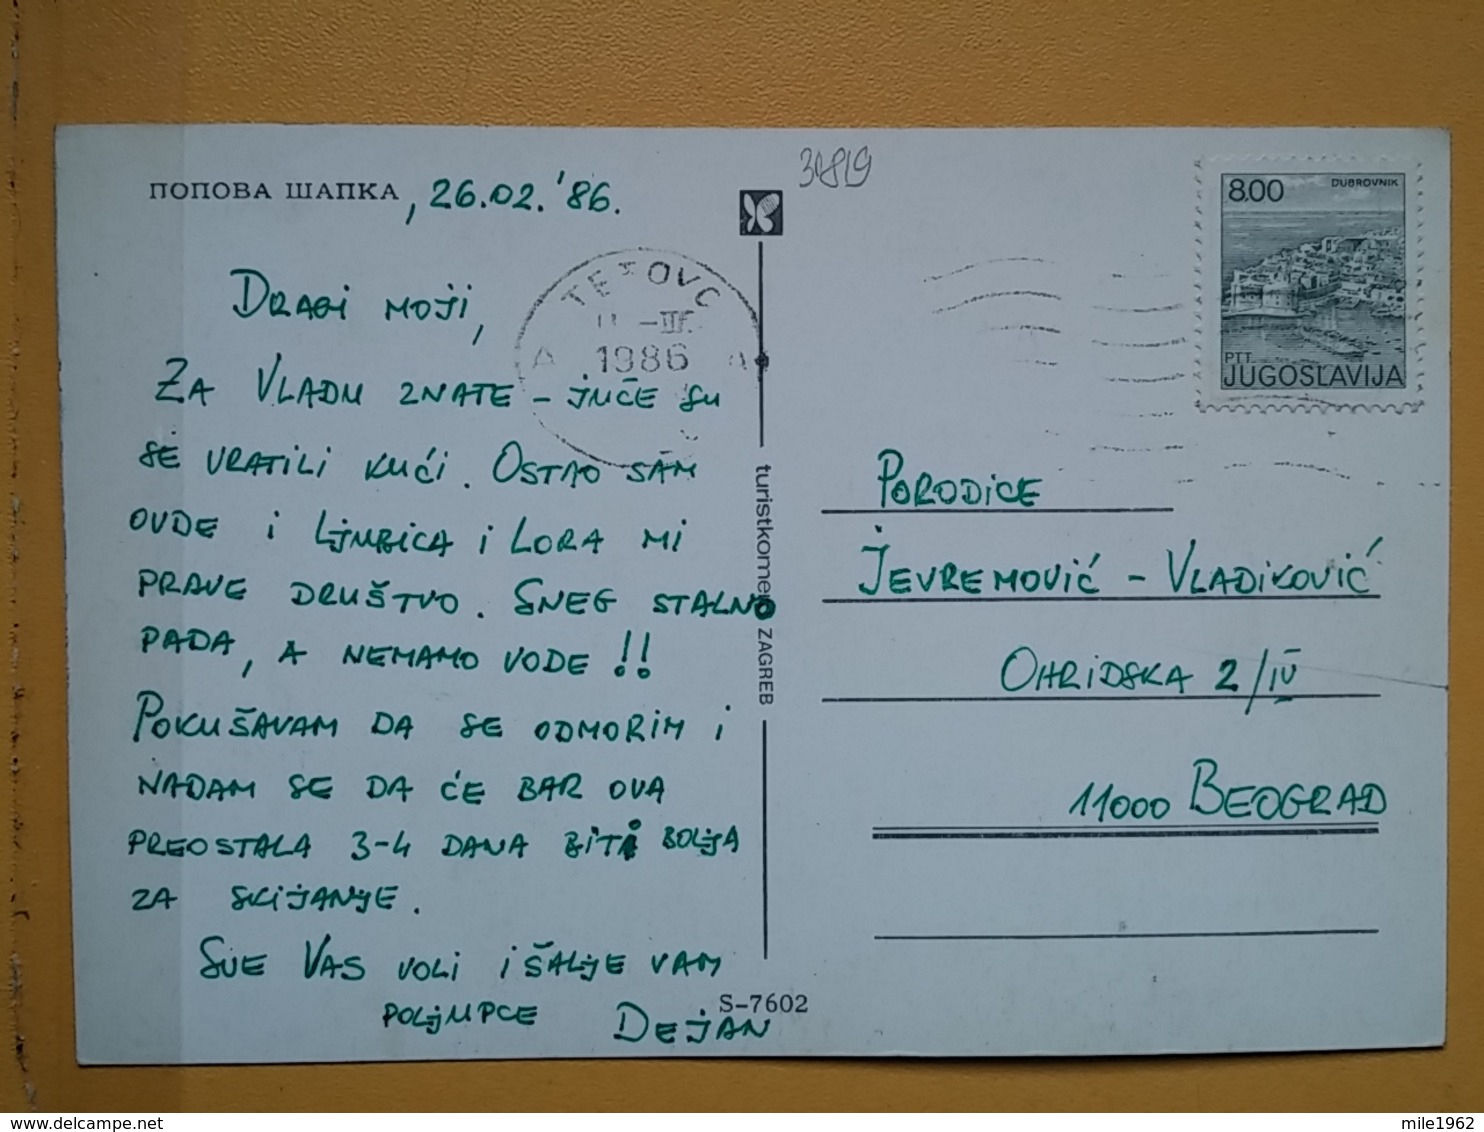 ПОПОВА ШАПКА, 26.02.'86.
30819
DRAGI MOJI,
ZA VLADU ZNATE - JUČE SU
SE VRATILI KUĆI. OSTAO SAM
OVDE I LJUBICA I LORA MI
PRAVE DRUŠTVO. SNEG STALNO
PADA, A NEMAMO VODE!!
POKUŠAVAM DA SE ODMORIM I
NADAM SE DA ĆE BAR OVA
PREOSTALA 3-4 DANA BITI BOLJA
ZA SKIJANJE.
SVE VAS VOLI I ŠALJE VAM
POLJUPCE DEJAN
TETOVO
-III
1986
A A
turistkomerc ZAGREB
S-7602
8.00 DUBROVNIK
PTT
JUGOSLAVIJA
PORODICE
JEVREMOVIĆ - VLADIKOVIĆ
OHRIDSKA 2/IV
11000 BEOGRAD
mile1962